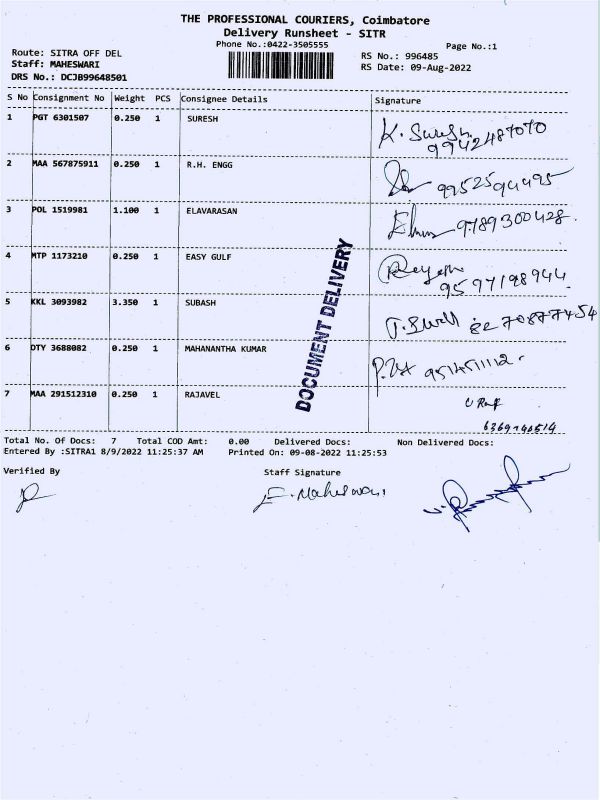 THE PROFESSIONAL COURIERS, Coimbatore
Delivery Runsheet - SITR
Phone No.:0422-3505555
Page No.:1
Route: SITRA OFF DEL
RS No.: 996485
Staff: MAHESWARI
RS Date: 09-Aug-2022
DRS No.: DCJB99648501
S No Consignment No Weight PCS Consignee Details Signature
1 PGT 6301507 0.250 1 SURESH
K. Suresh
9942487070
2 MAA 567875911 0.250 1 R.H. ENGG
9952594495
3 POL 1519981 1.100 1 ELAVARASAN
9789300428
4 MTP 1173210 0.250 1 EASY GULF
9597198944
5 KKL 3093982 3.350 1 SUBASH
6 DTY 3688082 0.250 1 MAHANANTHA KUMAR
7 MAA 291512310 0.250 1 RAJAVEL
DOCUMENT DELIVERY
Total No. Of Docs: 7 Total COD Amt: 0.00 Delivered Docs: Non Delivered Docs:
Entered By :SITRA1 8/9/2022 11:25:37 AM Printed On: 09-08-2022 11:25:53
Verified By Staff Signature
E. Maheswari